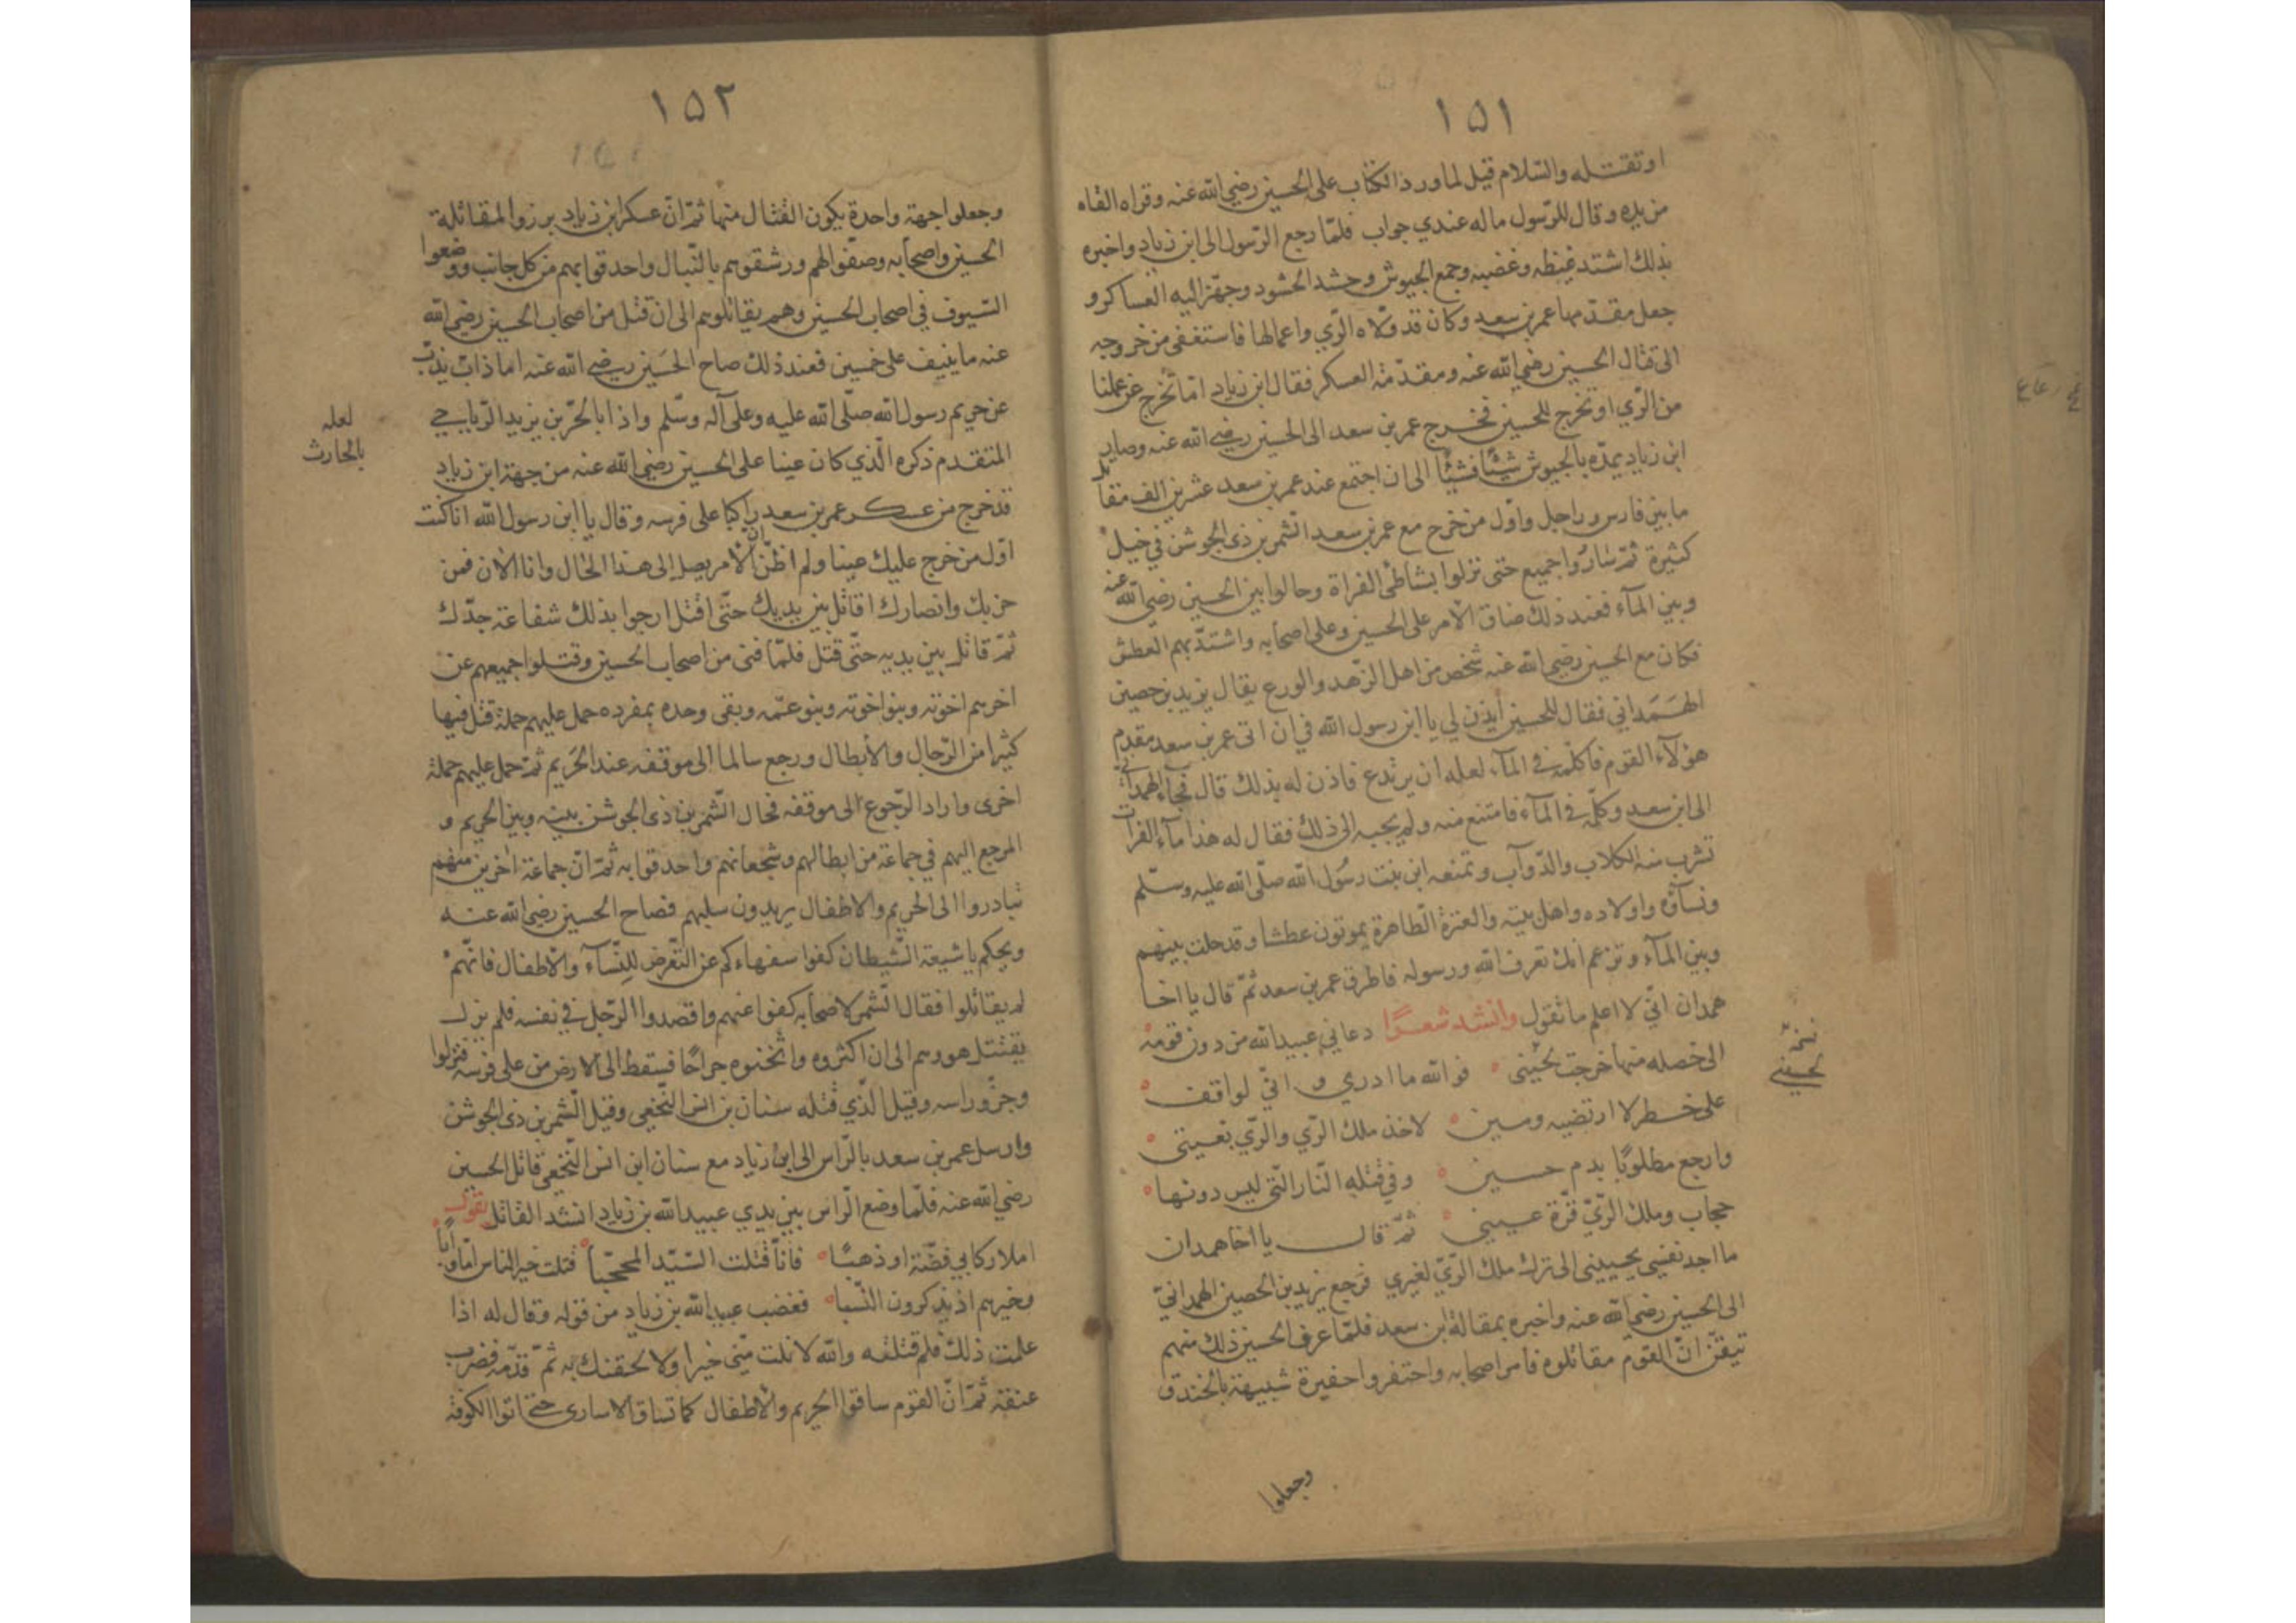 ١٥١
او تقتله والسّلام قيل لما ورد الكتاب على الحسين رضي الله عنه وقراه القاه
من يده وقال للرّسول ما له عندي جواب فلمّا رجع الرّسول الى ابن زياد واخبره
بذلك اشتد غيظه وغضبه وجمع الجيوش وحشد الحشود وجهّز اليه العساكر و
جعل مقدّمها عمر بن سعد وكان قد ولّاه الرّي واعمالها فاستعفى من خروجه
الى قتال الحسين رضي الله عنه ومقدّمة العسكر فقال ابن زياد امّا تخرج عن عملنا
من الرّي او تخرج للحسين فخرج عمر بن سعد الى الحسين رضي الله عنه وصار
ابن زياد يمدّه بالجيوش شيئًا فشيئًا الى ان اجتمع عند عمر بن سعد عشرين الف مقاتل
ما بين فارس وراجل واوّل من خرج مع عمر بن سعد الشّمر بن ذى الجوشن في خيل
كثيرة ثمّ ساروا جميع حتى نزلوا بشاطئ الفراة وحالوا بين الحسين رضي الله عنه
وبين المآء فعند ذلك ضاق الأمر على الحسين وعلى اصحابه واشتدّ بهم العطش
فكان مع الحسين رضي الله عنه شخص من اهل الزّهد والورع يقال يزيد بن حصين
الهمداني فقال للحسين أيذن لي يا ابن رسول الله في ان اتى عمر بن سعد مقدم
هؤلآء القوم فاكلّمه في المآء لعله ان يرتدع فاذن له بذلك قال فجاء الهمدانى
الى ابن سعد وكلّمه في المآء فامتنع منه ولم يجبه الى ذلك فقال له هذا مآء الفرات
تشرب منه الكلاب والدّوآب وتمنعه ابن بنت رسول الله صلّى الله عليه وسلّم
ونسآؤه واولاده واهل بيته والعترة الطّاهرة يموتون عطشا وقد حلت بينهم
وبين المآء وتزعم انّك تعرف الله ورسوله فاطرق عمر بن سعد ثمّ قال يا اخا
همدان انّي لا اعلم ما تقول وانشد شعرًا دعاني عبيد الله من دون قومه
الى خصله منها خرجت لحينى فو الله ما ادري و انّي لواقف
على خطر لا ارتضيه ومين لاخذ ملك الرّي والرّي بغيتى
وارجع مطلوبًا بدم حسين وفي قتله النّار الّتي ليس دونها
حجاب وملك الرّيّ قرّة عيني ثمّ قال يا اخا همدان
ما اجد نفسي يجيبني الى ترك ملك الرّيّ لغيري فرجع يزيد بن الحصين الهمدانيّ
الى الحسين رضي الله عنه واخبره بمقالة ابن سعد فلمّا عرف الحسين ذلك منهم
تيقّن انّ القوم مقاتلوه فامر اصحابه واحتفروا حفيرة شبيهة بالخندق
وجعلوا
١٥٢
وجعلوا جهة واحدة يكون القتال منها ثمّ انّ عسكر ابن زياد برزوا لمقاتلة
الحسين واصحابه وصفّوا لهم ورشقوهم بالنّبال واحدقوا بهم من كل جانب ووضعوا
السّيوف في اصحاب الحسين وهم يقاتلوهم الى ان قتل من اصحاب الحسين رضي الله
عنه ما ينيف على خمسين فعند ذلك صاح الحسين رضي الله عنه اما ذابّ يذبّ
عن حريم رسول الله صلّى الله عليه وعلى آله وسلّم واذا بالحرّ بن يزيد الرّياحي
لعله
بالحارث
المتقدم ذكره الّذي كان عينا على الحسين رضي الله عنه من جهة ابن زياد
قد خرج من عسكر عمر بن سعد راكبا على فرسه وقال يا ابن رسول الله انا كنت
اوّل من خرج عليك عينا ولم اظنّ انّ الأمر يصل إلى هذا الحال وانا الأن فمن
حزبك وانصارك اقاتل بين يديك حتّى اقتل ارجوا بذلك شفاعة جدّك
ثمّ قاتل بين يديه حتّى قتل فلمّا فنى من اصحاب الحسين وقتلوا جميعهم عن
اخرهم اخوته وبنو اخوته وبنو عمّه وبقى وحده بمفرده حمل عليهم حملة قتل فيها
كثيرا من الرّجال والأبطال ورجع سالما الى موقفه عند الحريم ثمّ حمل عليهم حملة
اخرى واراد الرّجوع الى موقفه فحال الشّمر بن ذى الجوشن بينه وبين الحريم و
المرجع اليهم في جماعة من ابطالهم وشجعانهم واحدقوا به ثمّ انّ جماعة اخرين منهم
تبادروا الى الحريم والاطفال يريدون سلبهم فصاح الحسين رضي الله عنه
ويحكم يا شيعة الشّيطان كفوا سفهاءكم عن التّعرض للنّسآء والأطفال فانّهم
لم يقاتلوا فقال الشّمر لاصحابه كفوا عنهم واقصدوا الرّجل في نفسه فلم يزل
يقتتل هو وهم الى ان اكثروه واثخنوه جراحًا فسقط الى الارض من على فرسه فنزلوا
وجزّوا راسه وقيل الّذي قتله سنان بن انس النّخعي وقيل الشّمر بن ذى الجوشن
وارسل عمر بن سعد بالرّاس الى ابن زياد مع سنان ابن انس النّخعي قاتل الحسين
رضي الله عنه فلمّا وضع الرّاس بين يدي عبيد الله بن زياد انشد القاتل يقول
املا ركابي فضّة او ذهبًا فانّا قتلت السّيّد المحجّبا قتلت خير الناس امّا وابًا
وخيرهم اذ يذكرون النّسبا فغضب عبيد الله بن زياد من قوله وقال له اذا
علمت ذلك فلم قتلته والله لا نلت منّي خيرا ولا لحقنك به ثمّ قدّمه فضرب
عنقه ثمّ انّ القوم ساقوا الحريم والأطفال كما تساق الاسارى حتى اتوا الكوفة